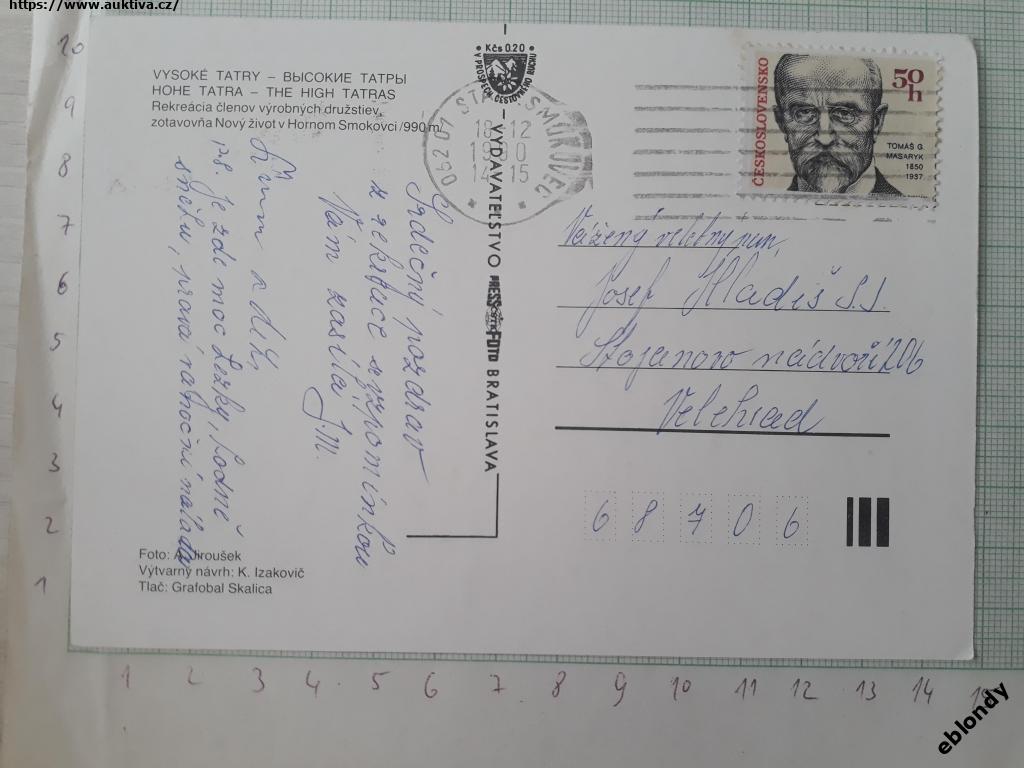 https://www.auktiva.cz/
VYSOKÉ TATRY – ВЫСОКИЕ ТАТРЫ
HOHE TATRA – THE HIGH TATRAS
Rekreácia členov výrobných družstiev,
zotavovňa Nový život v Hornom Smokovci /990 m
Srdečný pozdrav
z rekreace a vzpomínkou
Vám zasílá
P.S. Je zde moc hezky, hodně
sněhu, pravá vánoční nálada
Foto: A. Jiroušek
Výtvarný návrh: K. Izakovič
Tlač: Grafobal Skalica
Kčs 0.20
V PROSPECH CESTOVNÉHO RUCHU
VYDAVATEĽSTVO PRESSFOTO BRATISLAVA
062 01 SMOKOVEC
18-12
1990
14-15
ČESKOSLOVENSKO
50 h
TOMÁŠ G.
MASARYK
1850
1937
Vážený velebný pán
Josef Hladiš S.J.
Stojanovo nádvoří 206
Velehrad
6 8 7 0 6
10
9
8
7
6
5
4
3
2
1
1 2 3 4 5 6 7 8 9 10 11 12 13 14 15
eblondy